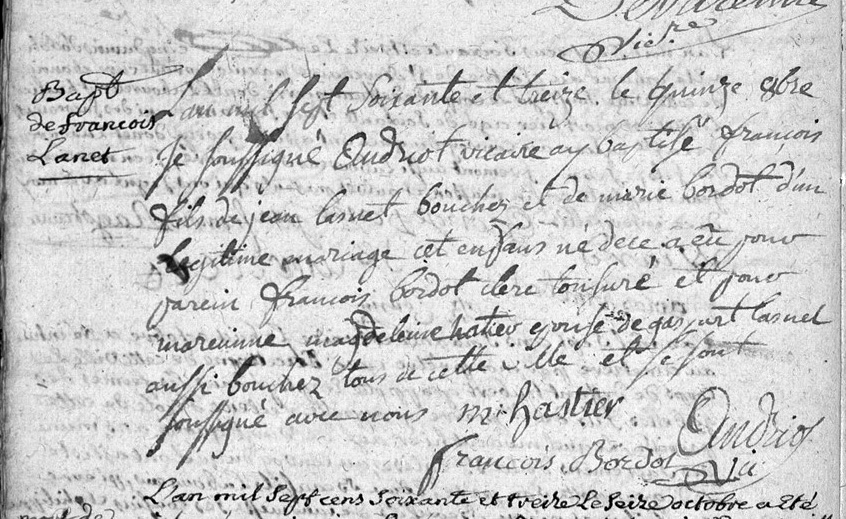 Vicre
Bapt
de francois
Lanet
Lan mil sept soixante et treize le quinze 8bre
Je soussigné Andriot vicaire ay baptisé françois
fils de jean lasnet boucher et de marie bordot d'un
legitime mariage cet enfans né de ce a eu pour
parein francois bordot clerc tonsuré et pour
mareinne magdeleine hatier epouse de gaspart lasnet
aussi boucher tous de cette ville et se sont
soussigné avec nous m. hastier
françois Bordot Andriot
Vic
L'an mil sept cens soixante et treize le seize octobre a été